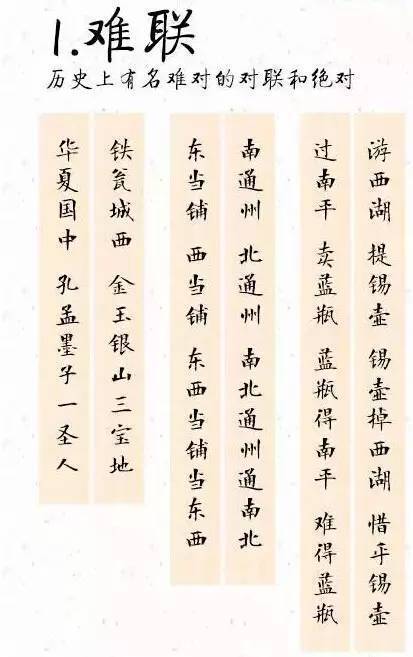 1.难联
历史上有名难对的对联和绝对
游西湖 提锡壶 锡壶掉西湖 惜乎锡壶
过南平 卖蓝瓶 蓝瓶得南平 难得蓝瓶
南通州 北通州 南北通州通南北
东当铺 西当铺 东西当铺当东西
铁瓮城西 金玉银山三宝地
华夏国中 孔孟墨子一圣人